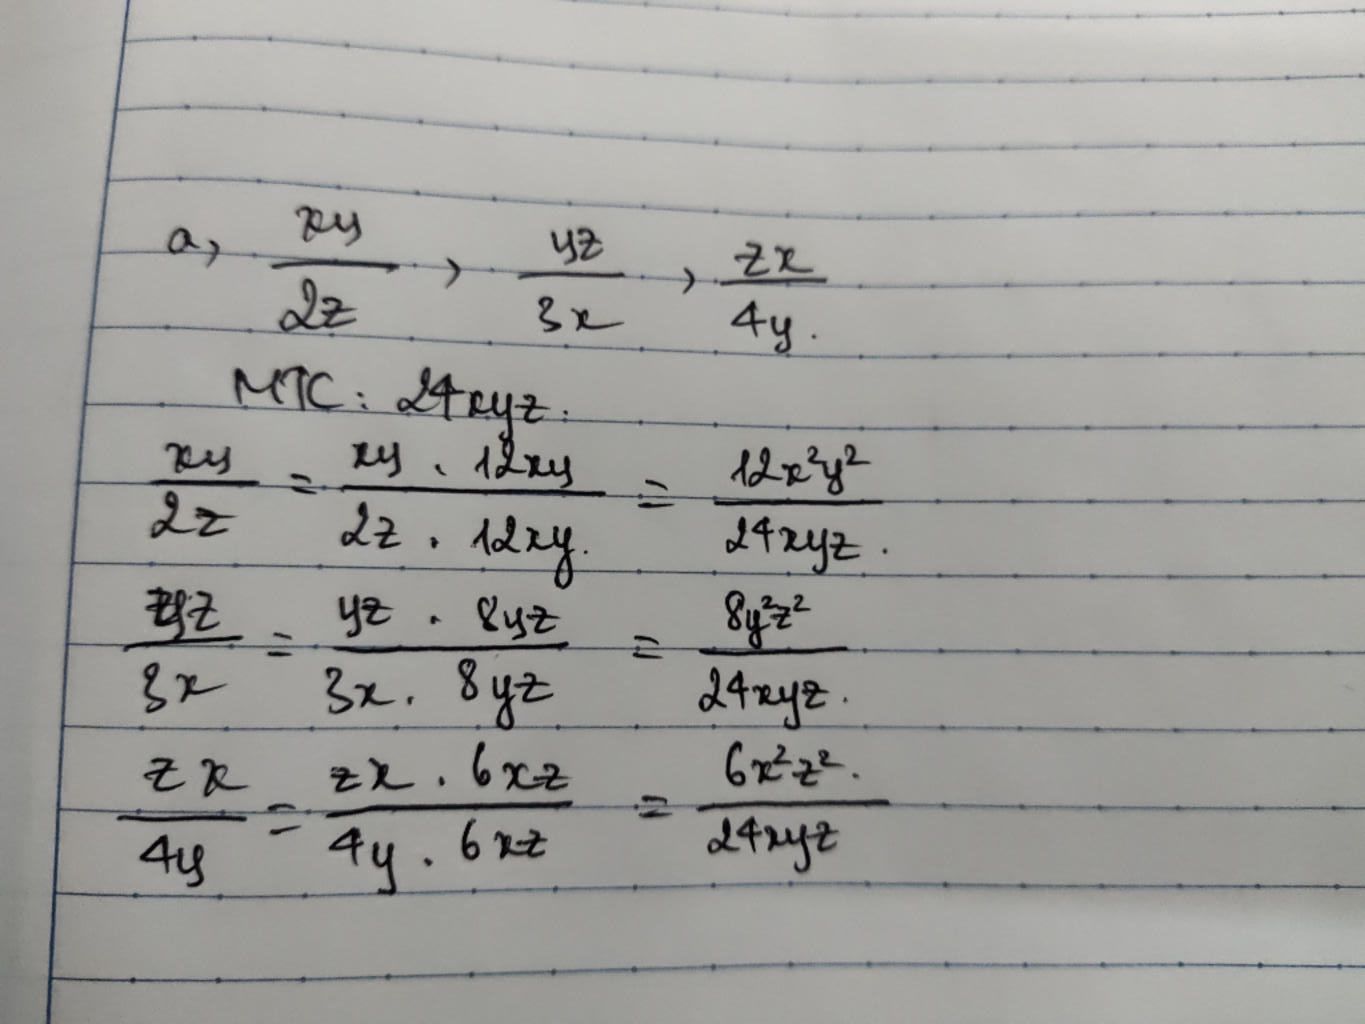 a, xy/2z, yz/3x, zx/4y.
MTC: 24xyz.
xy/2z = xy . 12xy/2z . 12xy. = 12x²y²/24xyz.
yz/3x = yz . 8yz/3x . 8yz = 8y²z²/24xyz.
zx/4y = zx . 6xz/4y . 6xz = 6x²z²./24xyz